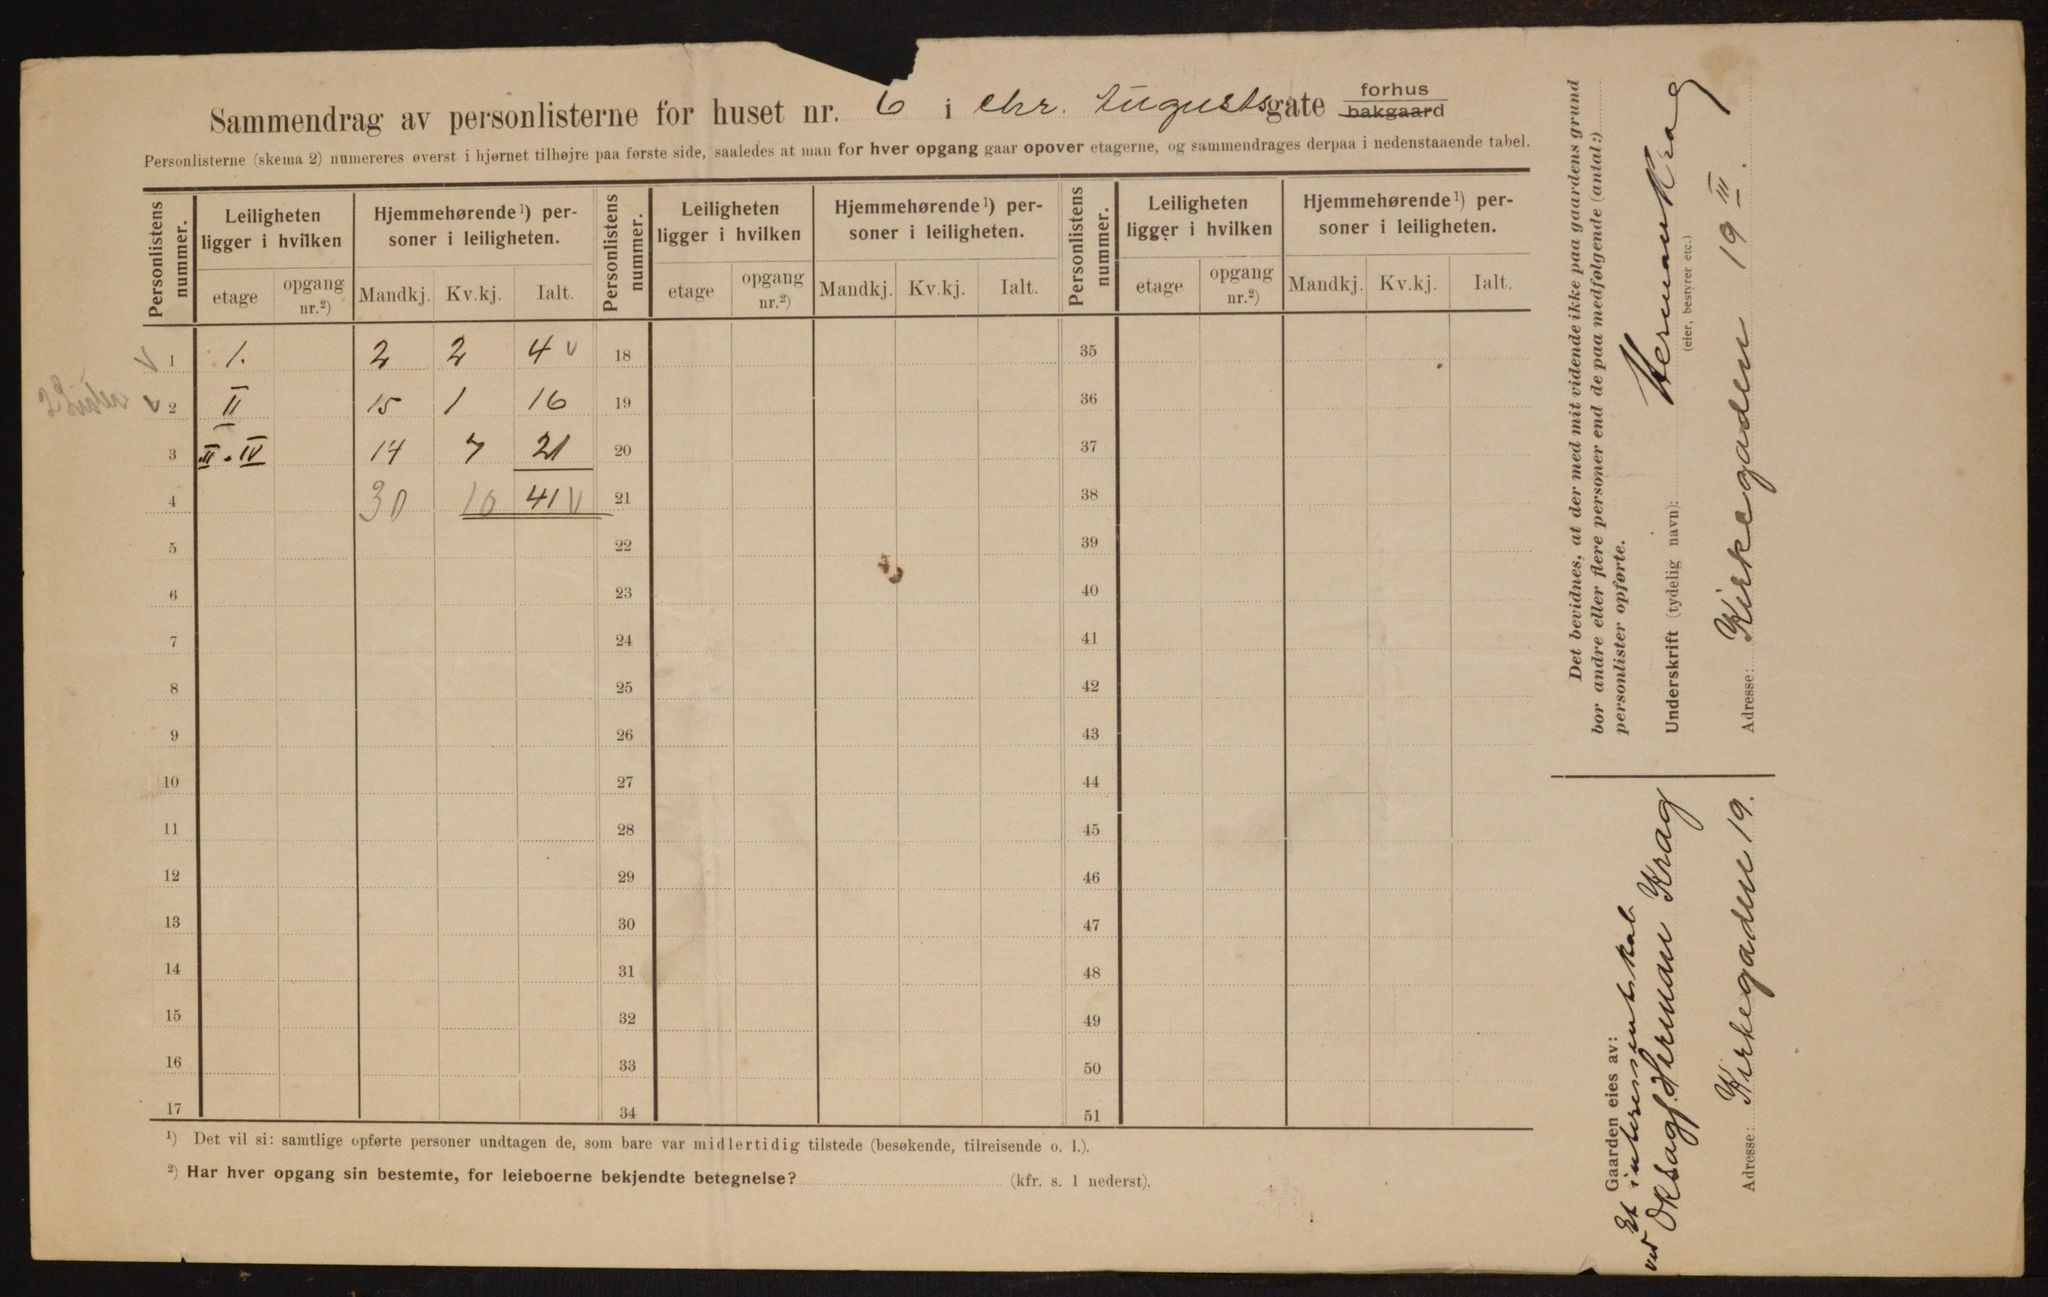 Sammendrag av personlisterne for huset nr. 6 i Chr. Augustsgate forhus
bakgaard
Personlisterne (skema 2) numereres øverst i hjørnet tilhøjre paa første side, saaledes at man for hver opgang gaar opover etagerne, og sammendrages derpaa i nedenstaaende tabel.
Personlistens nummer. Leiligheten ligger i hvilken Hjemmehørende¹) personer i leiligheten. Personlistens nummer. Leiligheten ligger i hvilken Hjemmehørende¹) personer i leiligheten. Personlistens nummer. Leiligheten ligger i hvilken Hjemmehørende¹) personer i leiligheten.
etage opgang nr.²) Mandkj. Kv.kj. Ialt. etage opgang nr.²) Mandkj. Kv.kj. Ialt. etage opgang nr.²) Mandkj. Kv.kj. Ialt.
1 1. 2 2 4 18 35
2 II 15 1 16 19 36
3 III.IV 14 7 21 20 37
4 30 10 41 21 38
5 22 39
6 23 40
7 24 41
8 25 42
9 26 43
10 27 44
11 28 45
12 29 46
13 30 47
14 31 48
15 32 49
16 33 50
17 34 51
¹) Det vil si: samtlige opførte personer undtagen de, som bare var midlertidig tilstede (besøkende, tilreisende o. l.).
²) Har hver opgang sin bestemte, for leieboerne bekjendte betegnelse? (kfr. s. 1 nederst).
Det bevidnes, at der med mit vidende ikke paa gaardens grund
bor andre eller flere personer end de paa medfølgende (antal:)
personlister opførte.
Underskrift (tydelig navn): Herman Krag
(eier, bestyrer etc.)
Adresse: Kirkegaden 19 III.
Gaarden eies av:
Et interessentskab
ved Herman Krag
Adresse: Kirkegaden 19.